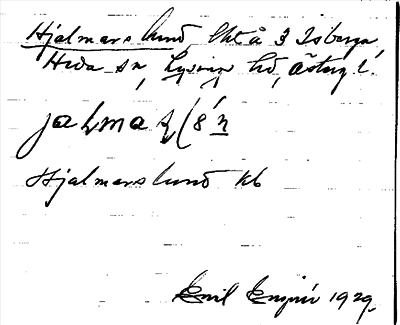 Hjalmarslund, lht å 3 Isberga,
Heda sn, Lysings hd, Östergl.
jalmaʂ(8´n
Hjalmarslund kb
Emil 1929.